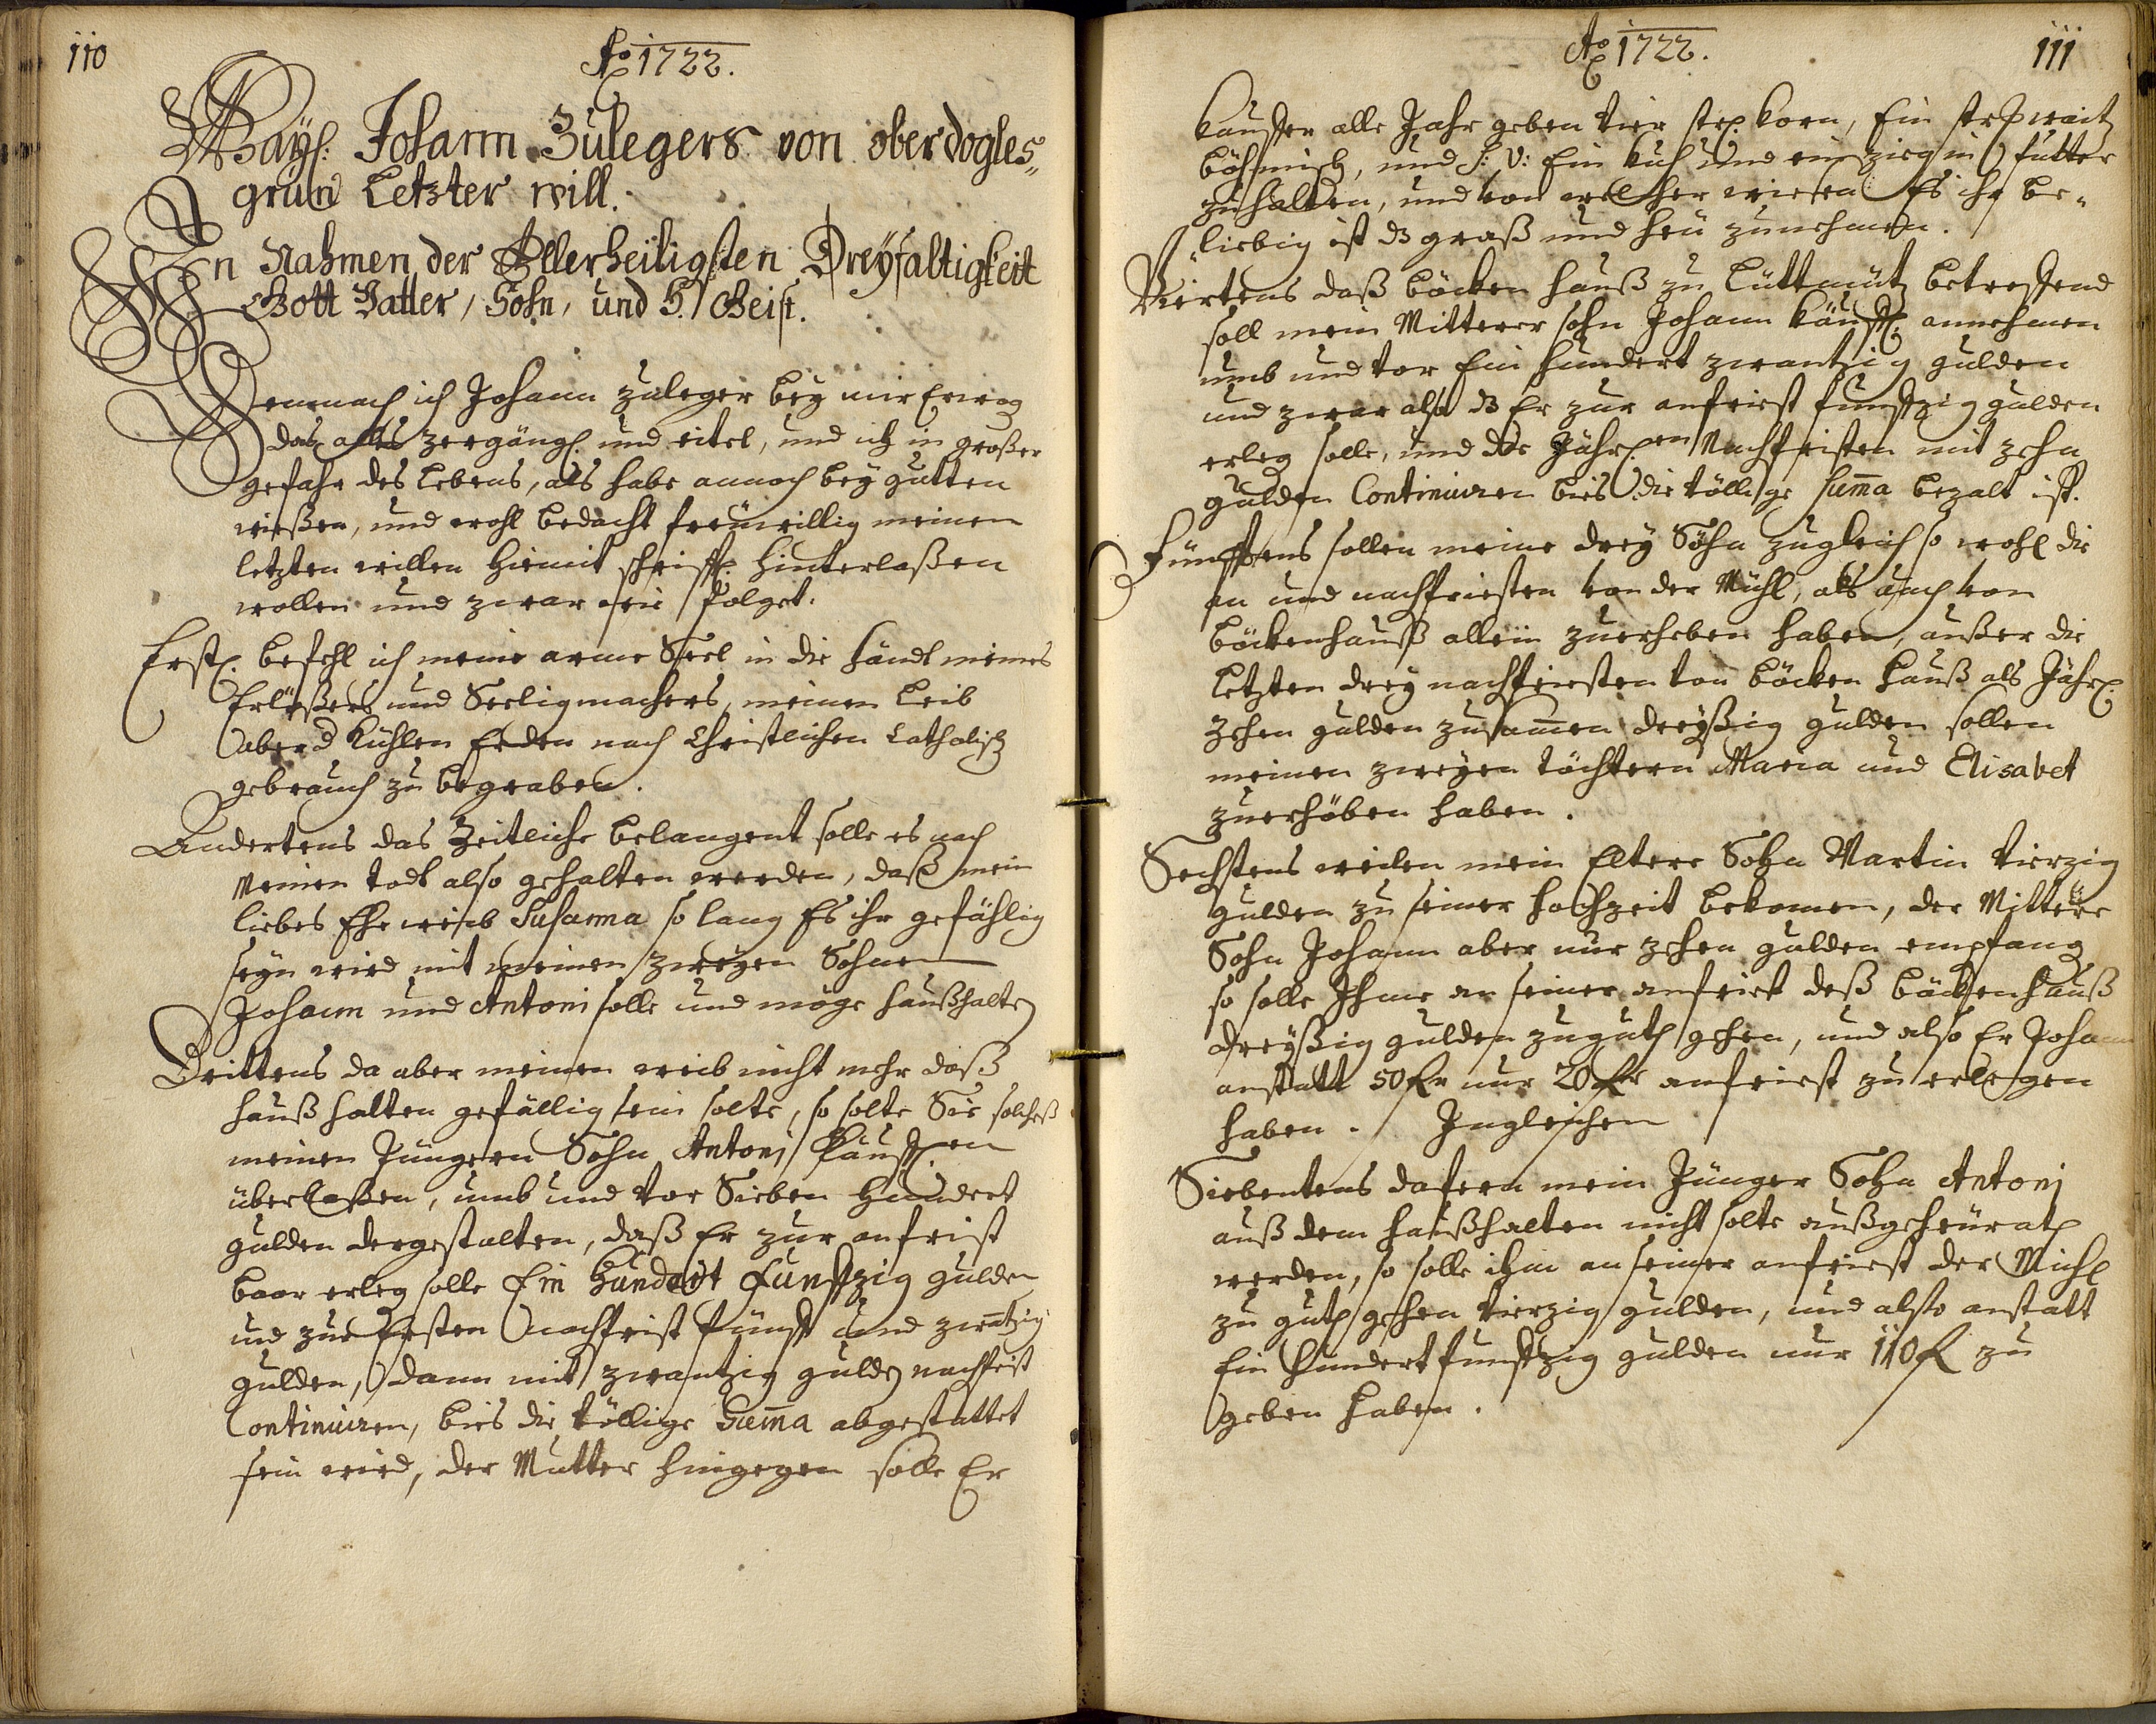 110
Ao 1722.
Wayl: Johann Zulegers von oberdogles„
grün Letzter will.
In Nahmen der Allerheiligsten Dreyfaltigkeit
Gott Vatter, Sohn, und H. Geist.
Demnach ich Johann Zuleger bey mir Erwog
das alles zergängl. und eitel, und ich in großer
gefahr des Lebens, als habe annoch bey gutten
wießen, und wohl bedacht freüwillig meinen
letzten willen hiemit schrifftl. hinterlaßen
wollen und zwar wie folget.
Erstl. befehl ich meine arme Seel in die händt meines
Erlößers und Seeligmachers, meinen Leib
aber d kühlen Erden nach Christlichen Catholisch
gebrauch zu begraben.
Andertens das Zeitliche belangent solle es nach
meinen todt also gehalten werden, daß mein
liebes Ehe weib Susanna so lang Es ihr gefählig
seyn wird mit meinen zweyen Söhnen
Johann und Antoni solle und möge haußhalten
Drittens da aber meinen weib nicht mehr daß
hauß halten gefällig sein solte, so solte Sie solches
meinen Jüngern Sohn Antoni Käuffl.en
überlaßen, umb und vor Sieben Hundert
gulden dergestalten, daß Er zur anfrist
baar erleg solle Ein Hundert Funffzig gulden
und zur Ersten nachfrist fünff und zwantzig
gulden, dann mit zwantzig gulden nachfrist
Continuiren, bies die völlige Summa abgestattet
sein wird, der Mutter hingegen solle Er
Ao 1722.
111
Kauffer alle Jahr geben vier str. Korn, Ein str. waitz
böhmisch, und S: V: Ein kuh und ein zieg in futter
zuhalten, und von welcher wiesen Es ihr be„
„liebig ist dz graß und heü zunehmen.
Viertens daß böcken hauß zu Lüttmütz betreffend
soll mein Mitterer sohn Johann käuffl. annehmen
umb und vor Ein hundert zwantzig gulden
und zwar also dz Er zur anfriest funffzig gulden
erleg solle, und die Jährl.en Nachfristen mit zehn
gulden Continuiren bies die völlige Summa bezalt ist.
Fünfftens sollen meine drey Söhn zugleich so wohl die
an und nachfriesten von der Mühl, als auch von
böckenhauß allein zuerheben haben, außer die
Letzten drey nachfriesten von böcken hauß als Jährl.
zehen gulden zusammen dreyßig gulden sollen
meinen zweyen töchtern Maria und Elisabet
zuerhöben haben.
Sechstens weilen mein Eltere Sohn Martin vierzig
gulden zu seiner hochzeit bekomen, der Mittere
Sohn Johann aber nur zehen gulden empfang
so solle Ihme an seiner anfriest deß böckenhauß
dreyßig gulden zuguth gehen, und also Er Johann
anstatt 50 fl nur 20 fl anfriest zu erlegen
haben. Ingleichen
Siebentens dafern mein Jünger Sohn Antoni
auß dem haußhalten nicht solte außgeheürath
werden, so solle ihm an seiner anfriest der Mühl
zu guth gehen vierzig gulden, und also anstatt
Ein hundert funffzig gulden nur 110 fl zu
geben haben.